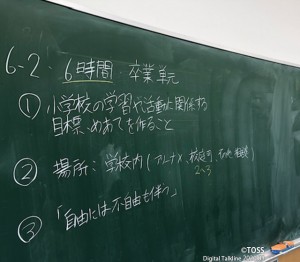 6-2. 6時間 卒業単元
① 小学校の学習や活動に関係する
目標、めあてを作ること
② 場所:学校内(アルナメ、校庭可、
2〜3
③ 「自由には不自由も伴う」
©TOSS
Digital Talkline 20